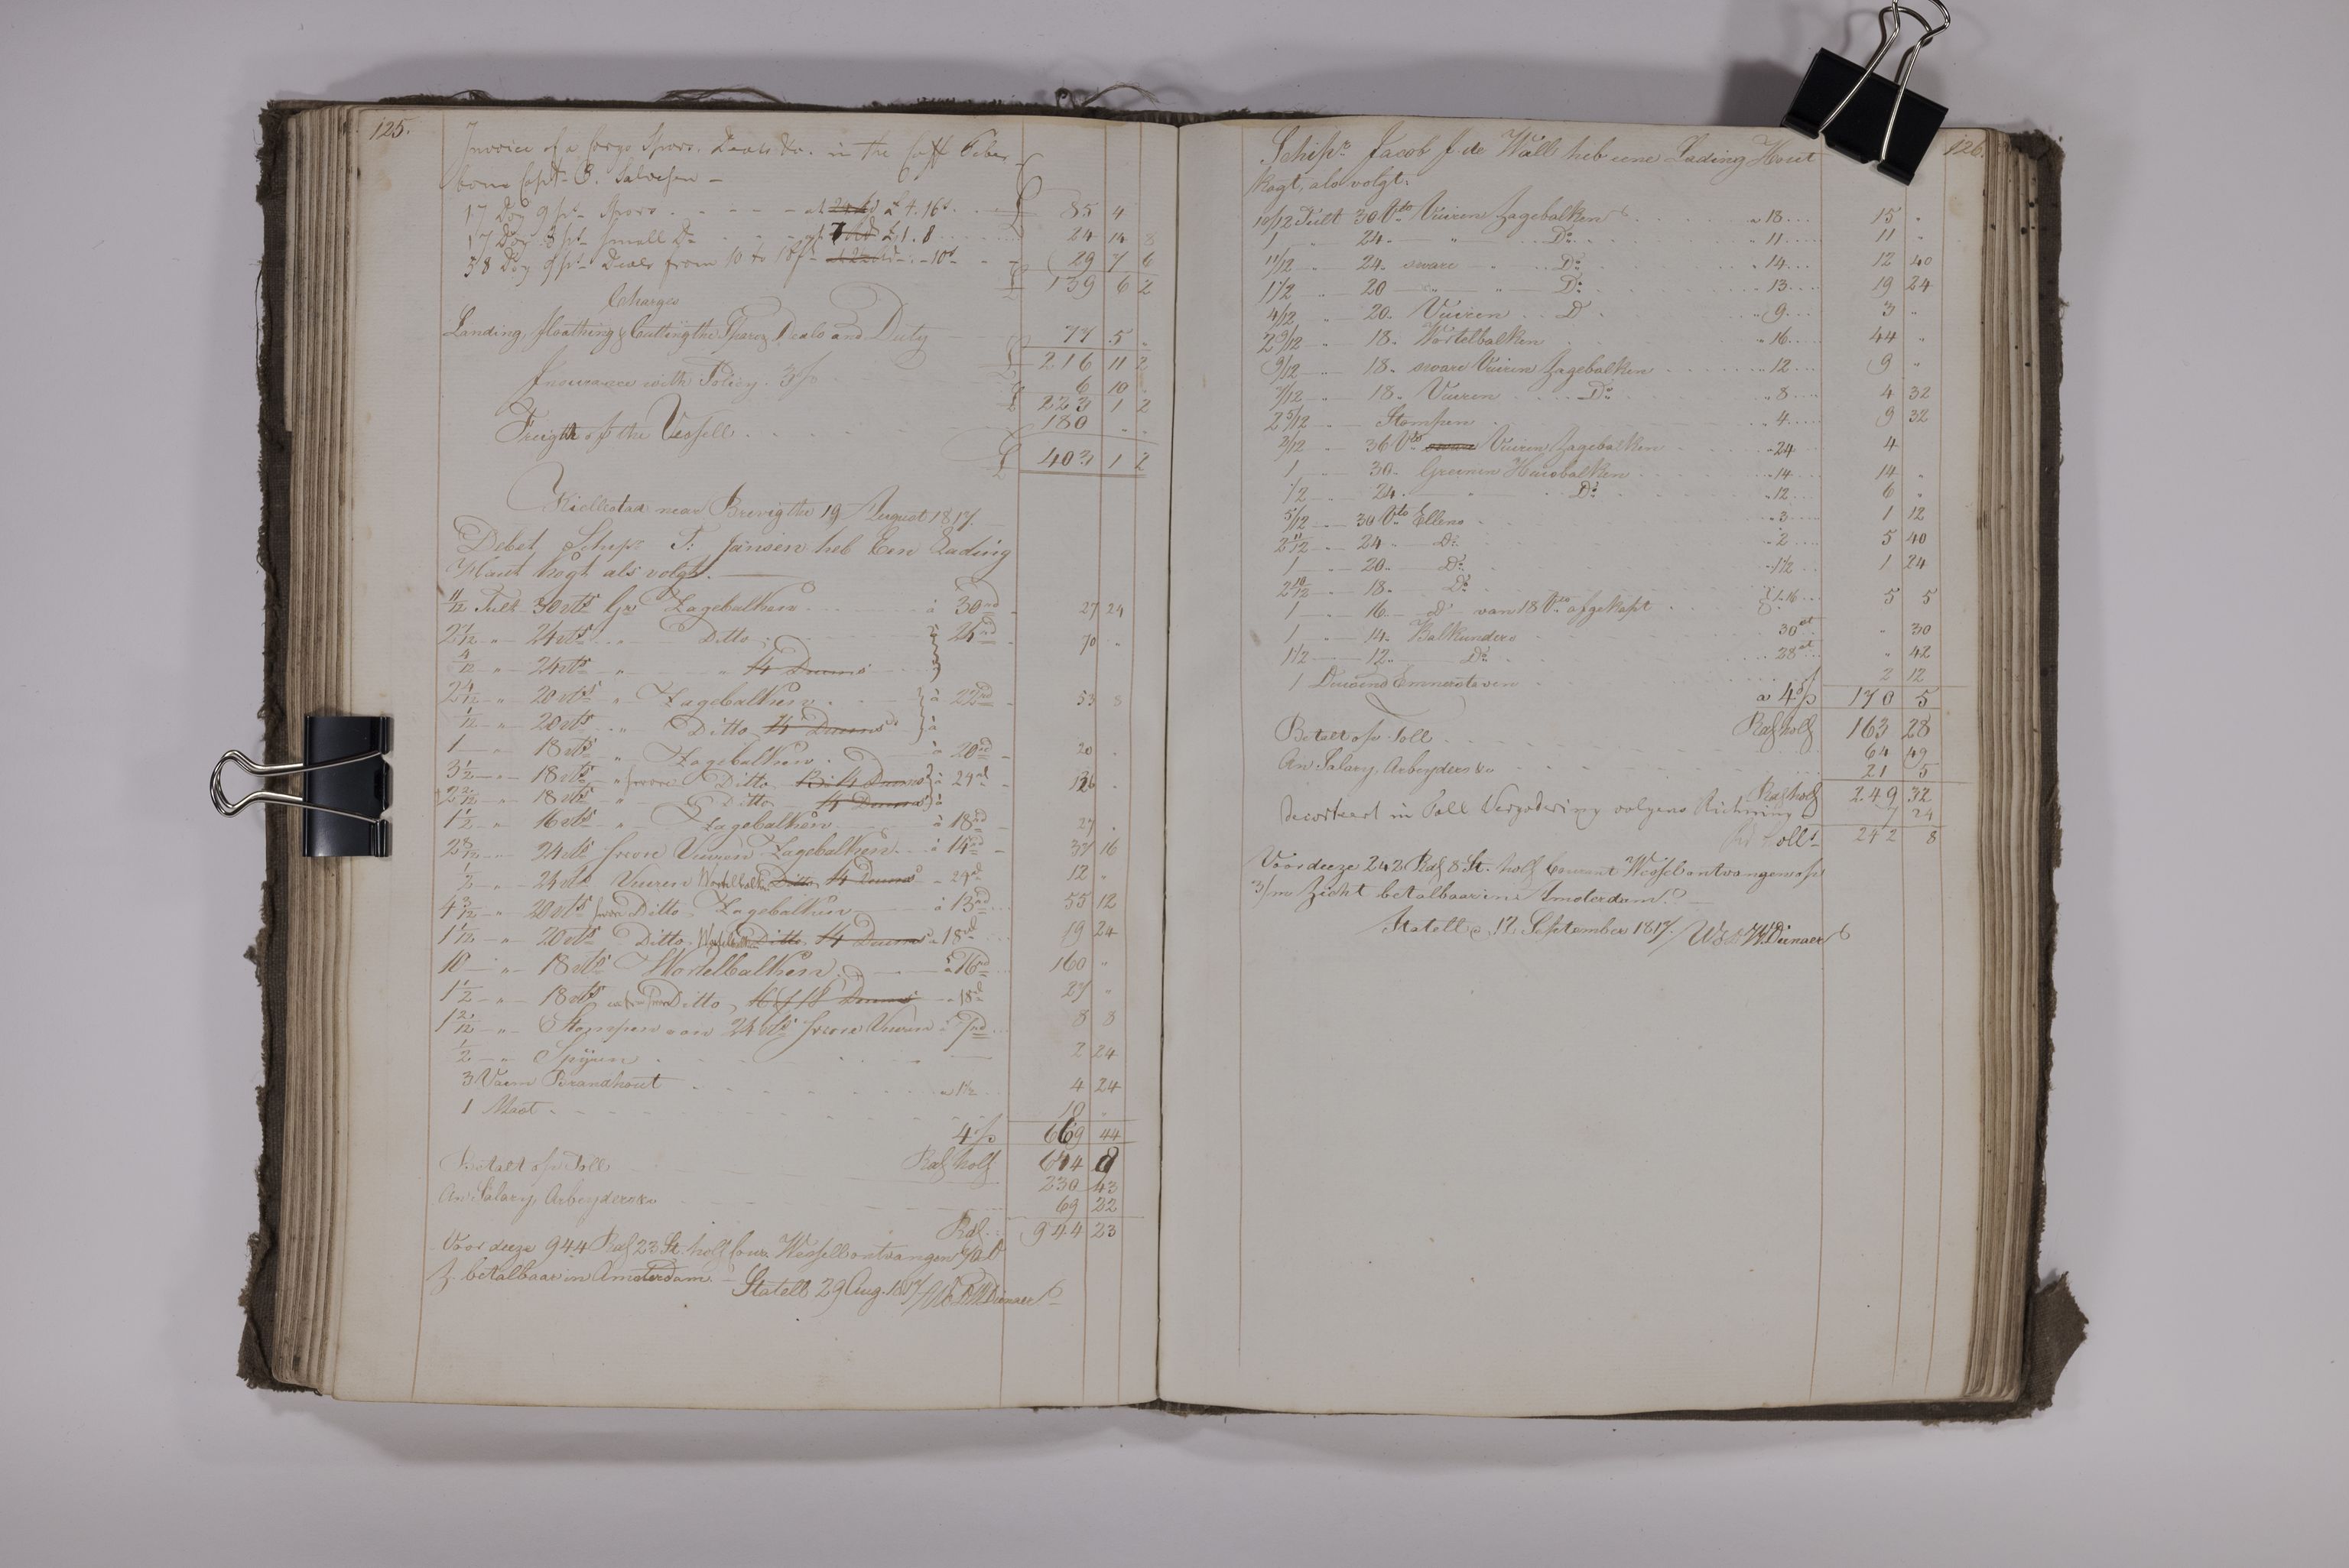 125.
Invoice of a Cargo Spars, Deals &c. in the Caff
Capt. Salvesen –
17 Doz 9 ps. Spars at 24 a £ 4.16s. £ 85 4
17 Doz 8 ps. Small Do a £ 1.8 24 14 8
58 Doz 9 ps. Deals from 10 to 18f 10s 29 7 6
£ 139 6 2
Charges
Landing, floathing & Cutting the Sparrs, Deals and Duty 77 5 "
£ 216 11 2
Insurance with Policy 3 p 6 10 "
£ 223 1 2
Freight of the Vessell 180 " "
£ 403 1 2
near Brevig the 19 August 1817.
Debet Schipr. T. Jansen heb Een Lading
Haut kogt als volgt.
11/12 Tult 30 vts Gr Zagebalken à 30 27 24
24 vts " Ditto 70 "
4/12 " 24 vts " " 4 Duims
2 4/12 " 20 vts " Zagebalken à 22 53 8
1/12 " 20 vts " Ditto 4 Duims à
1 " 18 vts " Zagebalken à 20 20 "
3 1/2 " 18 vts " svare Ditto 4 Duims à 24
18 vts " Ditto 4 Duims à
1 1/2 " 16 vts " Zagebalken à 18 27 "
2 8/12 " 24 vts svare Vuuren Zagebalken à 14 37 16
1/2 " 24 vts Vuuren Wortelbalk Ditto 4 Duims 24 12 "
4 3/12 " 20 vts svare Ditto Zagebalken à 13 55 12
20 vts Ditto Ditto 4 Duims à 18 19 24
10 " 18 vts Wortelbalken à 16 160 "
1 1/2 " 18 vts Ditto Duims à 18 27 "
1 2/12 " Stompen van 24 vts svare Vuuren à 7 8 8
1/2 " Spijren 2 24
3 Vaem Brandhout à 1 1/2 4 24
1 Mast 10 "
4 p 669 44
Betalt op Toll Rds holl 644 8
230 43
An Salary, Arbeyders &c 69 22
Rds. 944 23
Voor deeze 944 Rds 23 St. holl Cour. Wessell ontvangen
Z. betalbaar in Amsterdam.
Statell 29 Aug. 1817 Dienaer
126.
Schipr. Jacob J. de Wall heb eene Lading Hout
kogt, als volgt:
10/12 Tult 30 Vto Vuiren Zagebalken " 18 15 "
1 " 24 " Do. " 11 11 "
11/12 " 24 svare " Do. " 14 12 40
1 1/2 " 20 " " Do. " 13 19 24
4/12 " 20 Vuiren Do " 9 3 "
2 9/12 " 18 Wortelbalken " 16 44 "
9/12 " 18 svare Vuiren Zagebalken " 12 9 "
7/12 " 18 Vuiren Do. " 8 4 32
2 5/12 " Stompen " 4 9 32
2/12 " 36 Vto svare Vuiren Zagebalken " 24 4
1 " 30 Greenen Huisbalken " 14 14 "
1/2 " 24 " Do. " 12 6 "
5/12 " 30 Vto Ellens " 3 1 12
2 11/12 " 24 Do. " 2 5 40
1 " 20 Do. " 1 1/2 1 24
2 10/12 " 18 Do.
1 " 16 Do van 18 Vto afgekapt 1.16 5 5
1 " 14 Balkunders 30 st " 30
1 1/2 " 12 Do. 28 st " 42
1 Duisend Emmerstaven 2 12
a 4 p 170 5
Rds holl 163 28
Betalt op Toll 64 49
An Salary, Arbeyders &c 21 5
Rds holl 249 32
in Toll Vergodering volgens Rickning 7 24
holl. 242 8
Voor deeze 242 Rds 8 St. holl Courant Wessel ontvangen op
3/m Zicht betalbaar in Amsterdam.
Statell 12 September 1817. Dienaer